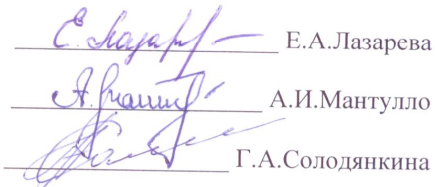 Е.А.Лазарева
А.И.Мантулло
Г.А.Солодянкина